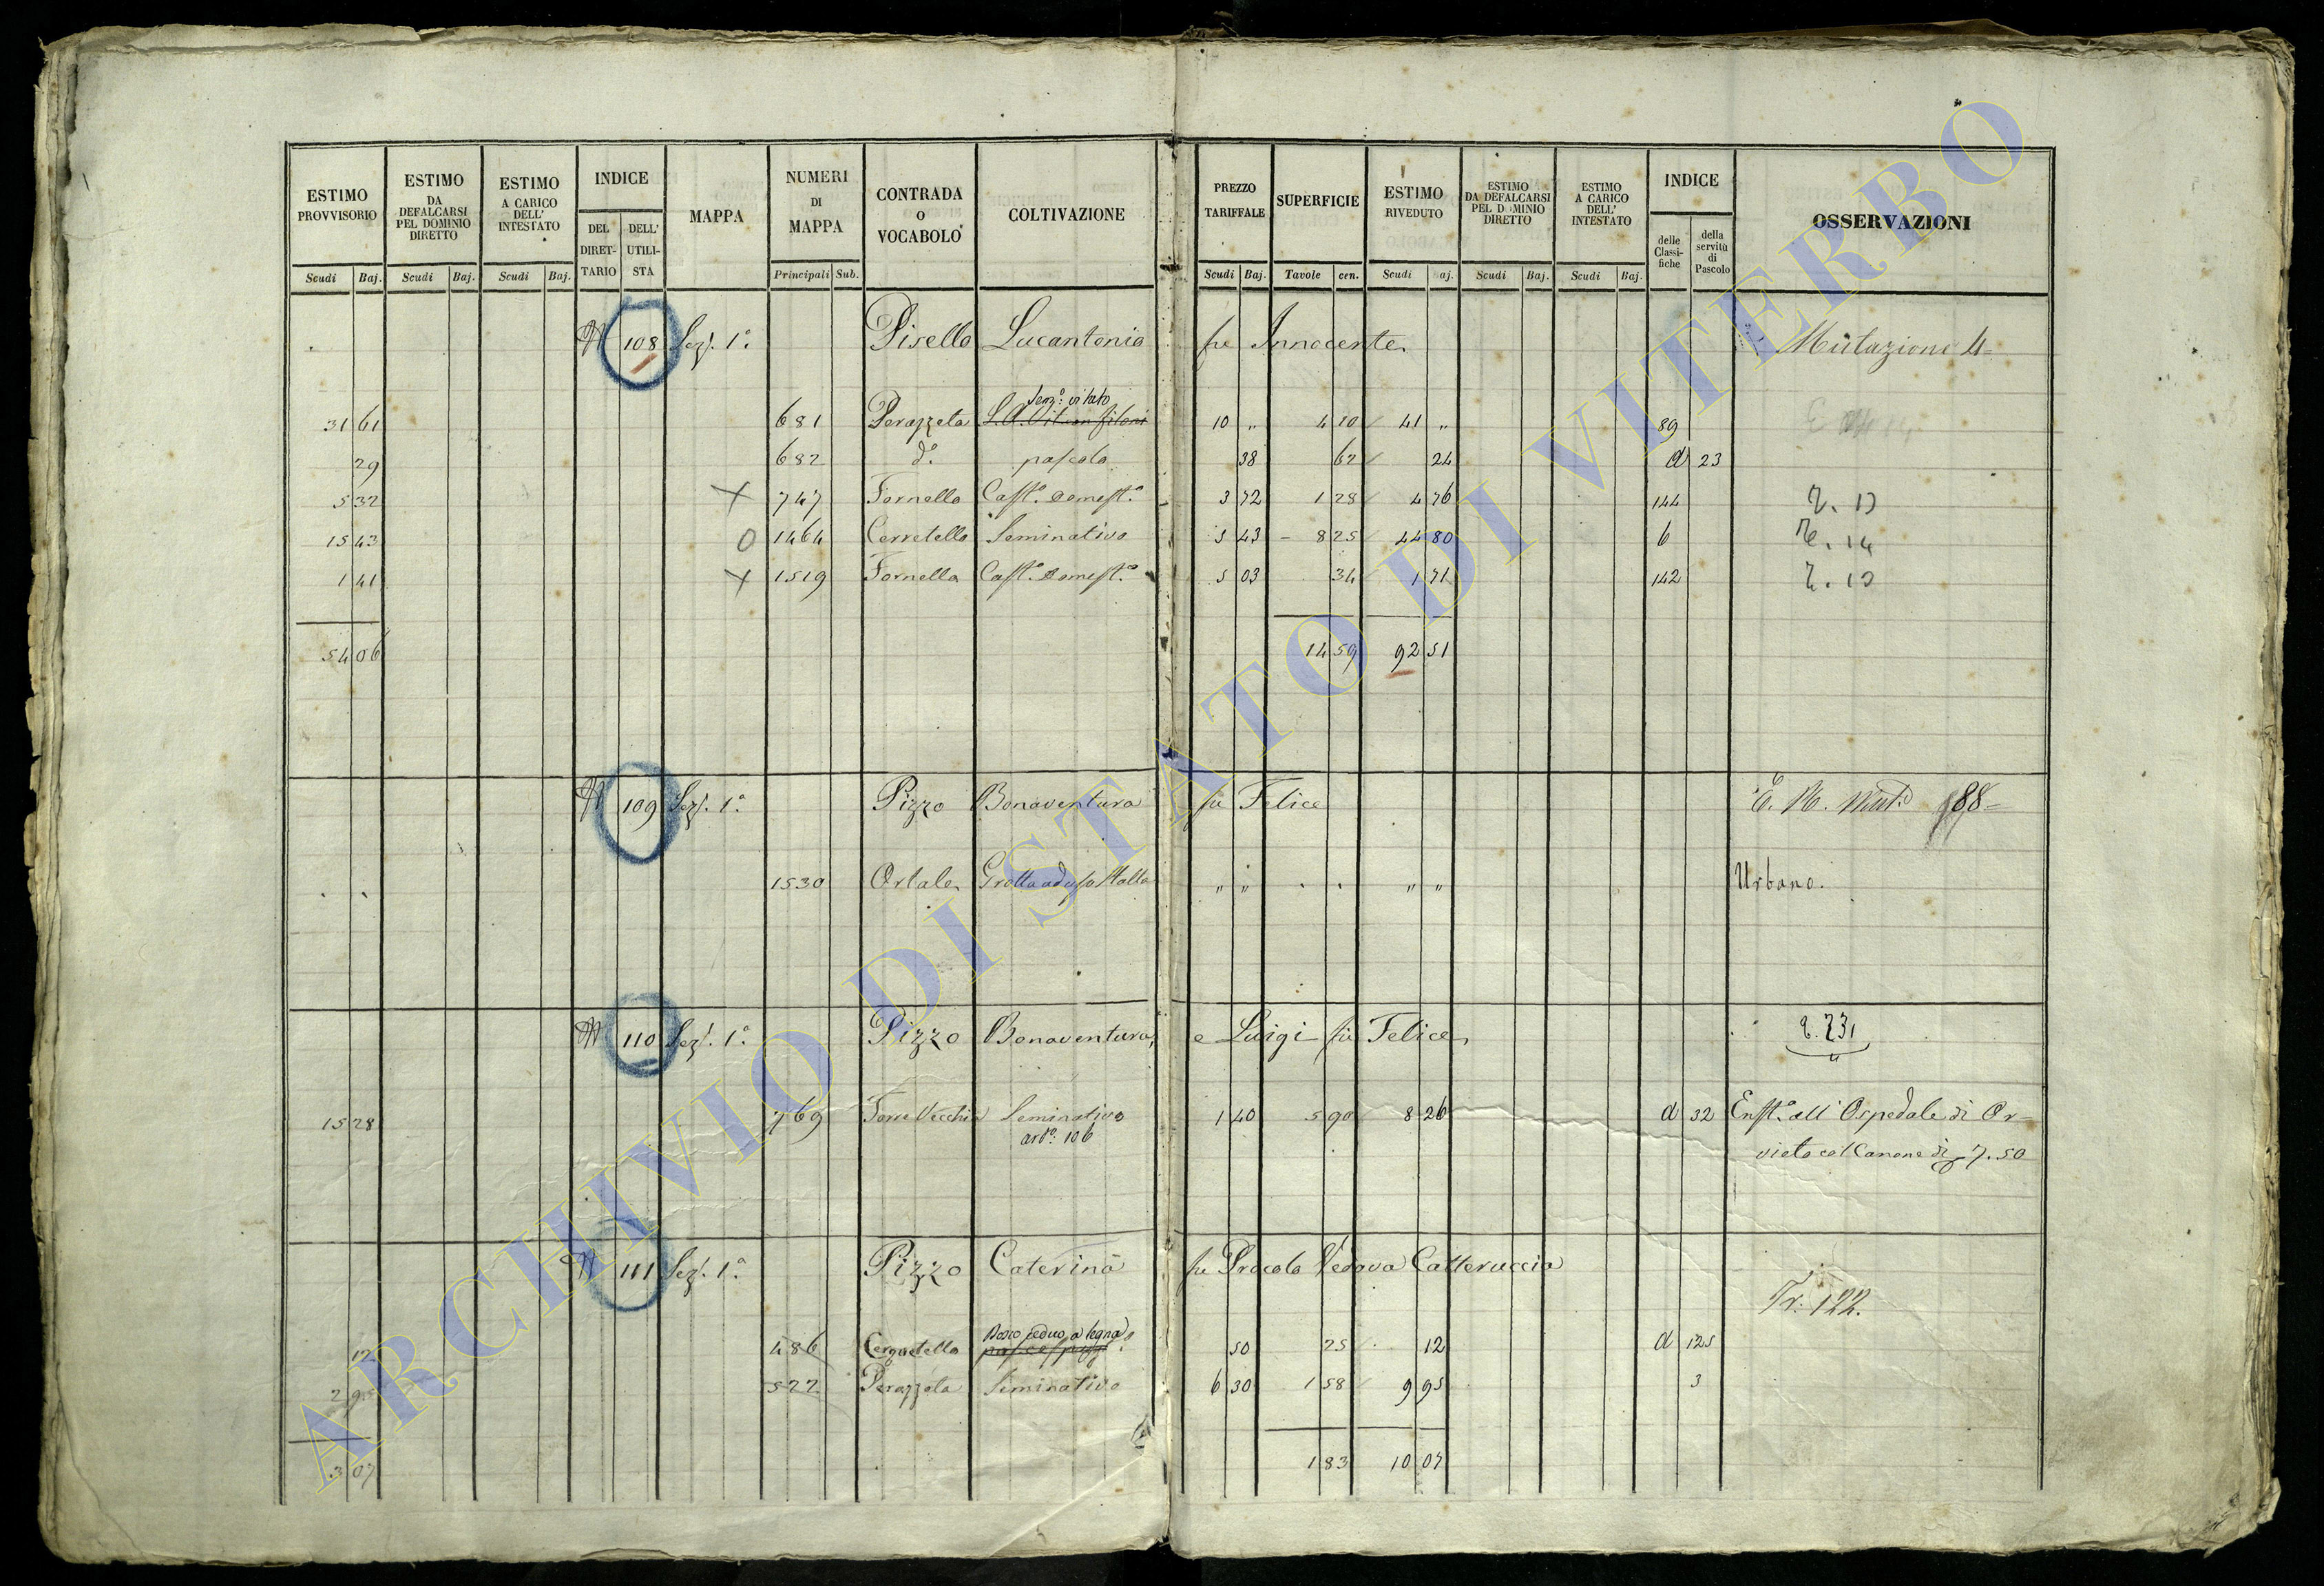 ESTIMO PROVVISORIO | ESTIMO DA DEFALCARSI PEL DOMINIO DIRETTO | ESTIMO A CARICO DELL' INTESTATO | INDICE | MAPPA | NUMERI DI MAPPA | CONTRADA O VOCABOLO | COLTIVAZIONE | PREZZO TARIFFALE | SUPERFICIE | ESTIMO RIVEDUTO | ESTIMO DA DEFALCARSI PEL DOMINIO DIRETTO | ESTIMO A CARICO DELL' INTESTATO | INDICE | OSSERVAZIONI
DEL DIRETTARIO | DELL' UTILISTA | delle Classifiche | della servitù di Pascolo
Scudi | Baj. | Scudi | Baj. | Scudi | Baj. | Principali | Sub. | Scudi | Baj. | Tavole | cen. | Scudi | aj. | Scudi | Baj. | Scudi | Baj.
108 Sez. 1.a Pisello Lucantonio fu Innocente Mutazione 4=
Semo: vitato
31 61 681 Perazzeta 10 " 4 10 41 " 89
29 682 do. pascolo 38 62 24 d 23
5 32 X 747 Fornello Casto. domesto. 3 72 1 28 4 76 144
15 43 O 1464 Cerretello Seminativo 5 43 8 25 44 80 6
1 41 X 1519 Fornello Casto. domesto. 5 03 34 1 71 142
54 06 14 59 92 51
109 Sez. 1.a Pizzo Bonaventura fu Felice 88=
1530 Ortale Grotta ad uso stalla " " " " Urbano.
110 Sez. 1.a Pizzo Bonaventura, e Luigi fu Felice 231
15 28 769 Torre Vecchia Seminativo 1 40 5 90 8 26 d 32 Ensto. all'Ospedale di Or=
arto: 106 vieto col Canone di 7.50
111 Sez. 1.a Pizzo Caterina fu Procolo Vedova Catteruccia
Tr: 122.
Bosco ceduo a legna
12 486 Cerquetello 50 25 12 d 125
2 95 522 Perazzeta Seminativo 6 30 1 58 9 95 3
3 07 1 83 10 07
ARCHIVIO DI STATO DI VITERBO